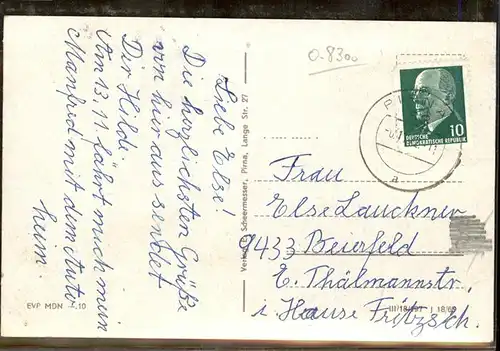 Liebe Else!
Die herzlichsten Grüße
von hier aus sendet
Dir Hilde
Am 13.11. fährt mich mein
Manfred mit dem Auto
heim.
EVP MDN -,10
Verlag E. Scheermesser, Pirna, Lange Str. 27
0-8300
DEUTSCHE
DEMOKRATISCHE REPUBLIK
10
a
Frau
Else Lauckner
9433 Beierfeld
E. Thälmannstr.
i. Hause Fritzsch.
III/18/197 J 18/69